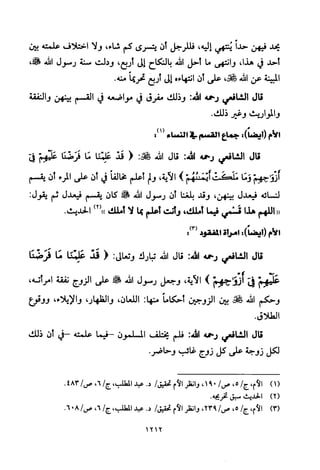 يحد فيهن حداً يُنتهي إليه، فللرجل أن يتسرى كم شاء، ولا اختلاف علمته بين
أحد في هذا، وانتهى ما أحل الله بالنكاح إلى أربع، ودلت سنة رسول الله ﷺ،
المبينة عن الله ﷻ، على أن انتهاءه إلى أربع تحريماً منه.
قال الشافعي رحمه الله: وذلك مفرق في مواضعه في القسم بينهن والنفقة
والمواريث وغير ذلك.
الأم (أيضاً): جماع القسم في النساء (١):
قال الشافعي رحمه الله: قال الله ﷻ: ﴿ قَدْ عَلِمْنَا مَا فَرَضْنَا عَلَيْهِمْ فِىٓ
أَزْوَٰجِهِمْ وَمَا مَلَكَتْ أَيْمَـٰنُهُمْ ﴾ الآية، ولم أعلم مخالفاً في أن على المرء أن يقسم
لنسائه فيعدل بينهن، وقد بلغنا أن رسول الله ﷺ كان يقسم فيعدل ثم يقول:
«اللهم هذا قَسْمي فيما أملك، وأنت أعلم بما لا أملك»(٢) الحديث.
الأم (أيضاً): امرأة المفقود (٣):
قال الشافعي رحمه الله: قال الله تبارك وتعالى: ﴿ قَدْ عَلِمْنَا مَا فَرَضْنَا
عَلَيْهِمْ فِىٓ أَزْوَٰجِهِمْ ﴾ الآية، وجعل رسول الله ﷺ على الزوج نفقة امرأته،
وحكم الله ﷻ بين الزوجين أحكاماً منها: اللعان، والظهار، والإيلاء، ووقوع
الطلاق.
قال الشافعي رحمه الله: فلم يختلف المسلمون -فيما علمته -في أن ذلك
لكل زوجة على كل زوج غائب وحاضر.
(١) الأم، ج/٥، ص/١٩٠، وانظر الأم تحقيق/ د. عبد المطلب، ج/٦، ص/٤٨٣.
(٢) الحديث سبق تخريجه.
(٣) الأم، ج/٥، ص/٢٣٩، وانظر الأم تحقيق/ د. عبد المطلب، ج/٦، ص/٦٠٨.
١٢١٢